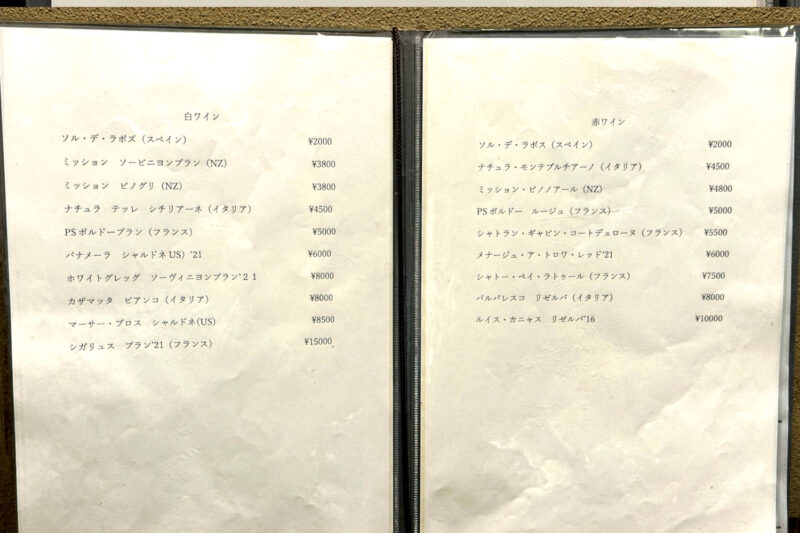 白ワイン
ソル・デ・ラポズ（スペイン） ¥2000
ミッション ソービニヨンブラン（NZ） ¥3800
ミッション ピノグリ（NZ） ¥3800
ナチュラ テッレ シチリアーネ（イタリア） ¥4500
PSボルドーブラン（フランス） ¥5000
パナメーラ シャルドネUS）'21 ¥6000
ホワイトグレッグ ソーヴィニヨンブラン'２１ ¥8000
カザマッタ ビアンコ（イタリア） ¥8000
マーサー・ブロス シャルドネ(US) ¥8500
シガリュス ブラン'21（フランス） ¥15000
赤ワイン
ソル・デ・ラポス（スペイン） ¥2000
ナチュラ・モンテプルチアーノ（イタリア） ¥4500
ミッション・ピノノアール（NZ） ¥4800
PSボルドー ルージュ（フランス） ¥5000
シャトラン・ギャビン・コートデュローヌ（フランス） ¥5500
メナージュ・ア・トロワ・レッド'21 ¥6000
シャトー・ペイ・ラトゥール（フランス） ¥7500
バルバレスコ リゼルバ（イタリア） ¥8000
ルイス・カニャス リゼルバ'16 ¥10000